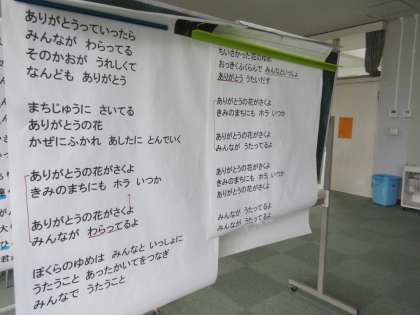 ありがとうっていったら
みんなが わらってる
そのかおが うれしくて
なんども ありがとう
まちじゅうに さいてる
ありがとうの花
かぜにふかれ あしたに とんでいく
ありがとうの花がさくよ
きみのまちにも ホラ いつか
ありがとうの花がさくよ
みんなが わらってるよ
ぼくらのゆめは みんなと いっしょに
うたうこと あったかいてをつなぎ
みんなで うたうこと
ちいさかった花のたねが
おっきくふくらんで みんなといっしょ
ありがとう うたいだす
ありがとうの花がさくよ
きみのまちにも ホラ いつか
ありがとうの花がさくよ
みんなが うたってるよ
ありがとうの花がさくよ
きみのまちにも ホラ いつか
ありがとうの花がさくよ
みんなが うたってるよ
みんなが うたってるよ